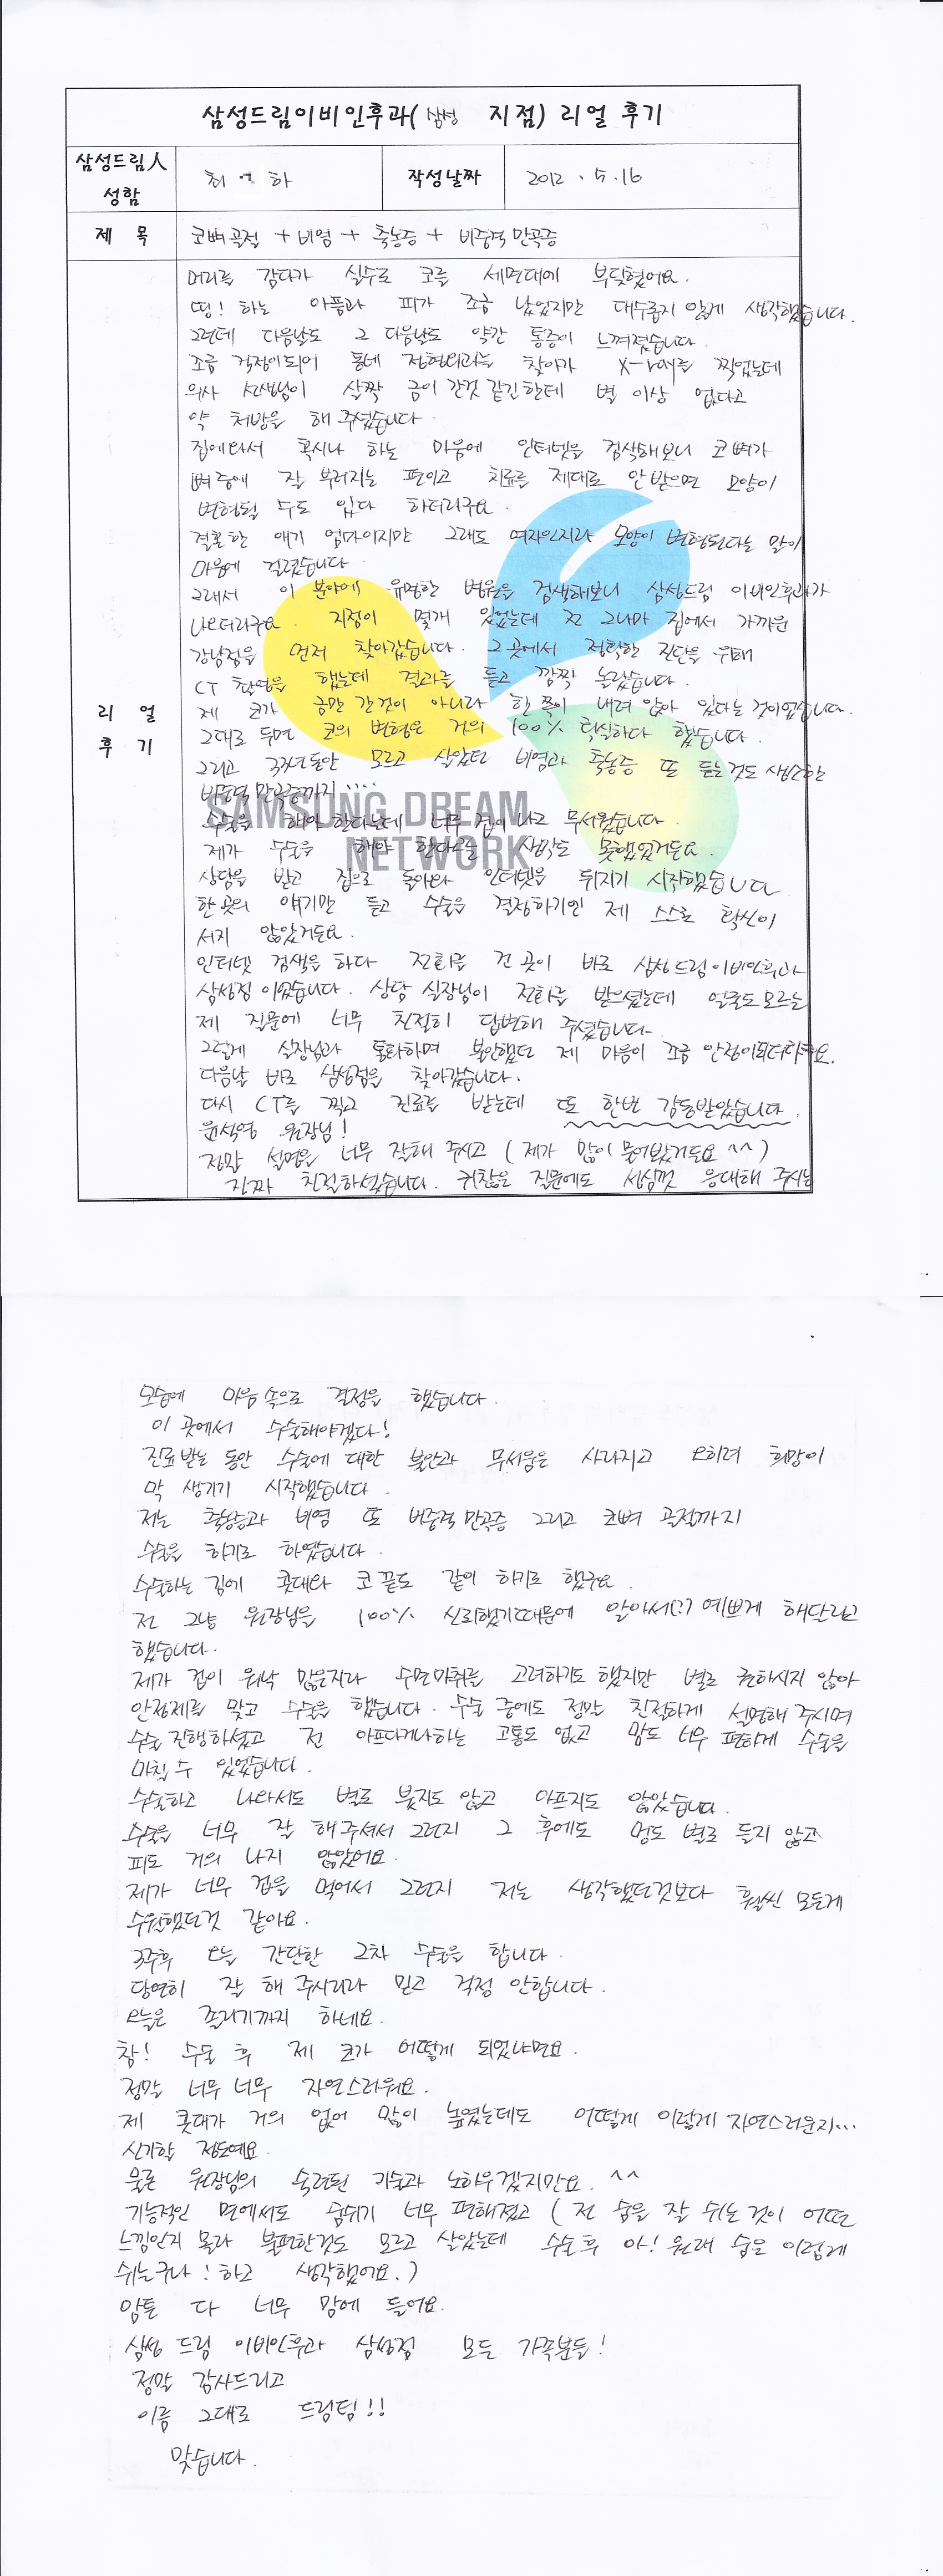 삼성드림이비인후과( 삼성 지점) 리얼 후기
삼성드림人 성함 최 하 작성날짜 2012 . 5 . 16
제 목 코뼈골절 + 비염 + 축농증 + 비중격 만곡증
리 얼 후 기
머리를 감다가 실수로 코를 세면대에 부딪혔어요.
띵! 하는 아픔과 피가 조금 났었지만 대수롭지 않게 생각했습니다.
그런데 다음날도 그 다음날도 약간 통증이 느껴졌습니다.
조금 걱정이되어 동네 정형외과를 찾아가 X-ray를 찍었는데
의사 선생님이 살짝 금이 간것 같긴한데 별 이상 없다고
약 처방을 해 주셨습니다.
집에와서 혹시나 하는 마음에 인터넷을 검색해보니 코뼈가
뼈중에 잘 부러지는 편이고 치료를 제대로 안받으면 모양이
변형될 수도 있다 하더라구요.
결혼한 애기 엄마이지만 그래도 여자인지라 모양이 변형된다는 말이
마음에 걸렸습니다.
그래서 이 분야에 유명한 병원을 검색해보니 삼성드림 이비인후과가
나오더라구요. 지점이 몇개 있었는데 전 그나마 집에서 가까운
강남점을 먼저 찾아갔습니다. 그 곳에서 정확한 진단을 위해
CT 촬영을 했는데 결과를 듣고 깜짝 놀랐습니다.
제 코가 금만 간것이 아니라 한 쪽이 내려 앉아 있다는 것이었습니다.
그대로 두면 코의 변형은 거의 100% 확실하다 했습니다.
그리고 동안 모르고 살았던 비염과 축농증 또 듣는것도 생소한
비중격 만곡증까지....
수술을 해야 한다는데 너무 겁이나고 무서웠습니다.
제가 수술을 해야 한다고는 생각도 못했었거든요.
상담을 받고 집으로 돌아와 인터넷을 뒤지기 시작했습니다
한 곳의 얘기만 듣고 수술을 결정하기엔 제 스스로 확신이
서지 않았거든요.
인터넷 검색을 하다 전화를 건 곳이 바로 삼성드림이비인후과
삼성점 이었습니다. 상담 실장님이 전화를 받으셨는데 얼굴도 모르는
제 질문에 너무 친절히 답변해 주셨습니다.
그렇게 실장님과 통화하며 불안했던 제 마음이 조금 안정이되더라구요.
다음날 바로 삼성점을 찾아갔습니다.
다시 CT를 찍고 진료를 받는데 또 한번 감동받았습니다.
윤석영 원장님!
정말 설명을 너무 잘해 주시고 ( 제가 많이 물어봤거든요 ^^ )
진짜 친절하셨습니다. 귀찮은 질문에도 성심껏 응대해 주시는
SAMSUNG DREAM
NETWORK
모습에 마음속으로 결정을 했습니다.
이 곳에서 수술해야겠다!
진료받는 동안 수술에 대한 불안과 무서움은 사라지고 오히려 희망이
막 생기기 시작했습니다.
저는 축농증과 비염 또 비중격 만곡증 그리고 코뼈 골절까지
수술을 하기로 하였습니다.
수술하는 김에 콧대와 코 끝도 같이 하기로 했구요.
전 그냥 원장님을 100% 신뢰했기때문에 알아서(?) 예쁘게 해달라고
했습니다.
제가 겁이 워낙 많은지라 수면마취를 고려하기도 했지만 별로 권하시지 않아
안정제를 맞고 수술을 했습니다. 수술 중에도 정말 친절하게 설명해 주시며
수술 진행하셨고 전 아프다거나하는 고통도 없고 맘도 너무 편하게 수술을
마칠 수 있었습니다.
수술하고 나와서도 별로 붓지도 않고 아프지도 않았습니다.
수술을 너무 잘 해주셔서 그런지 그 후에도 멍도 별로 들지 않고
피도 거의 나지 않았어요.
제가 너무 겁을 먹어서 그런지 저는 생각했던것보다 훨씬 모든게
수월했던것 같아요.
3주후 오늘 간단한 2차 수술을 합니다.
당연히 잘 해 주시리라 믿고 걱정 안합니다.
오늘은 졸리기까지 하네요.
참! 수술 후 제 코가 어떻게 되었냐면요.
정말 너무 너무 자연스러워요.
제 콧대가 거의 없어 많이 높였는데도 어떻게 이렇게 자연스러운지...
신기할 정도예요.
물론 원장님의 숙련된 기술과 노하우겠지만요. ^^
기능적인 면에서도 숨쉬기 너무 편해졌고 ( 전 숨을 잘 쉬는 것이 어떤
느낌인지 몰라 불편한것도 모르고 살았는데 수술후 아! 원래 숨은 이렇게
쉬는구나! 하고 생각했어요.)
암튼 다 너무 맘에 들어요.
삼성 드림 이비인후과 삼성점 모든 가족분들!
정말 감사드리고
이름 그대로 드림팀!!
맞습니다.